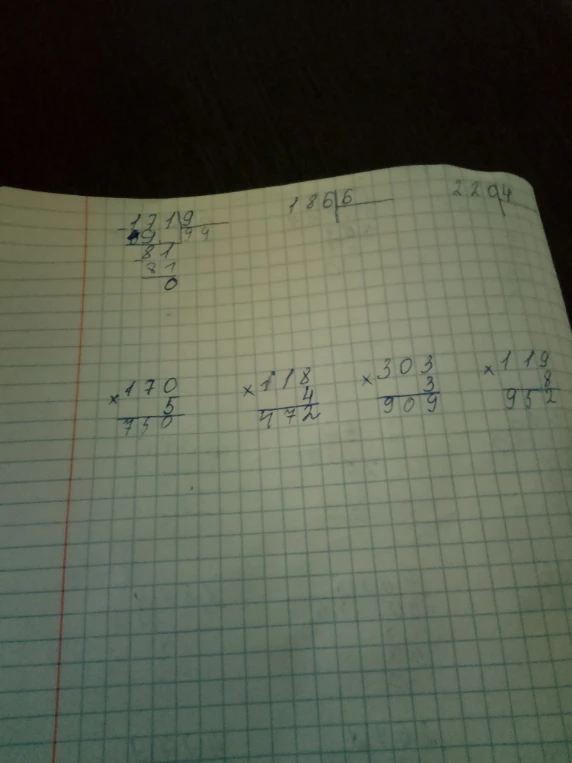 171|9 186|6 220|4
- 9 99
81
- 81
0
×170 ×118 ×303 ×119
5 4 3 8
750 472 909 952